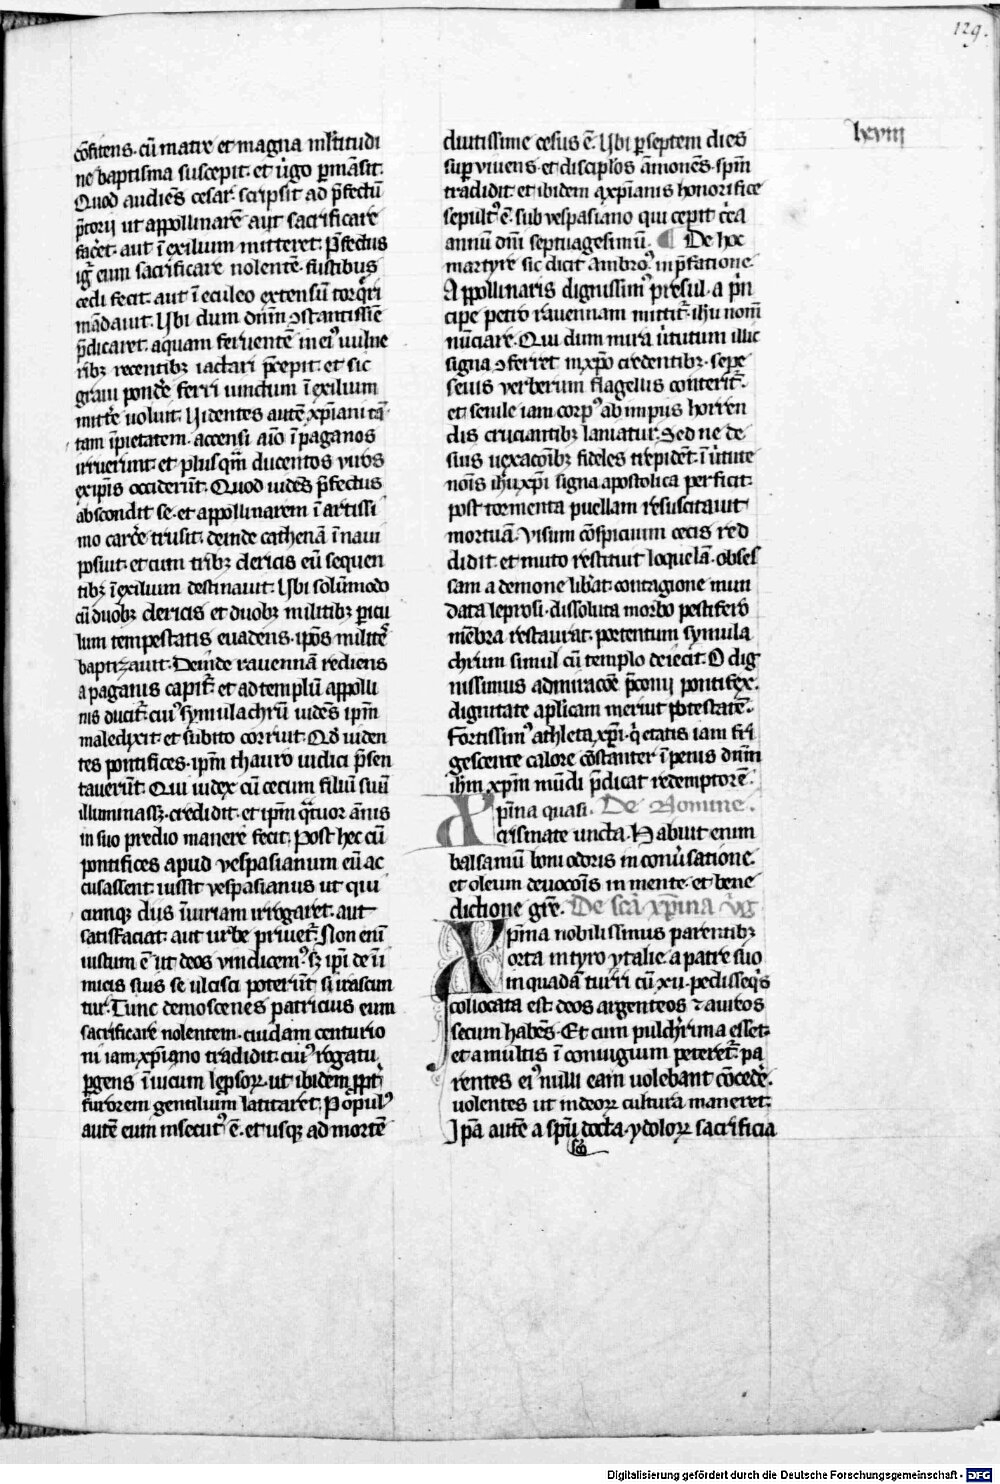 129.
lxviij
cōfitens. cū matre et magna ml̄titudi
ne baptisma suscepit. et v̄go p̄māsit.
Quod audiēs cesar. scripsit ad p̄fectū
p̄torii ut appollinarē aut sacrificare
fac̄et. aut ī exilium mitteret. P̄fectus
igr̄ eum sacrificare nolentē. fustibus
cedi fecit. aut ī eculeo extensū torq̄ri
mādauit. Ubi dum dn̄m ꝯstantissīe
p̄dicaret. aquam feruentē in eiꝰ uulne
ribꝫ recentibꝫ iactari p̄cepit. et sic
graui pond̄e ferri uinctum ī exilium
mitt̄e uoluit. Uidentes autē xp̄iani tā
tam īpietatem. accensi aīo ī paganos
irruerunt. et plusqm̄ ducentos viros
ex ip̄is occiderūt. Quod uidēs p̄fectus
abscondit se. et appollinarem ī artissi
mo carc̄e trusit. deinde cathenā ī naui
posuit. et cum tribꝫ clericis eū sequen
tibꝫ ī exilium destinauit. Ubi solūmodo
cū duobꝫ clericis et duobꝫ militibꝫ p̄icu
lum tempestatis euadens. ip̄os militē
baptiȝauit. Deinde rauennā rediens
a paganis capit̄. et ad templū appolli
nis ducit̄. cuiꝰ symulachrū uidēs ip̄m
maledixit et subito corruit. Qd̄ uiden
tes pontifices. ip̄m thauro iudici p̄sen
tauerūt. Qui iudex cū cecum filiū suū
illuminasꝫ. credidit. et ip̄m q̄tuor ānis
in suo predio manere fecit. Post hec cū
pontifices apud vespasianum eū ac
cusassent. iussit vespasianus ut qui
cumqꝫ diis īiuriam irrogaret. aut
satisfaciat. aut urbe priuet̄. Non enī
iustum ē ut deos vindicemꝰ. sꝫ ip̄i de īi
micis suis se ulcisci poterūt si irascun
tur. Tunc demoscenes patricius eum
sacrificare nolentem. cuidam centurio
ni iam xp̄iano tradidit. cuiꝰ rogatu
p̄gens ī uicum lep̄soꝝ. ut ibidem pp̄t̄
furorem gentilium latitaret. Populꝰ
autē eum insecutꝰ ē. et usqꝫ ad mortē
diutissime cesus ē. Ubi p̄ septem dies
sup̄ viuens. et discip̄los āmonēs. sp̄m
tradidit. et ibidem a xp̄ianis honorifice
sepultꝰ ē. sub vespasiano qui cepit c̄ca
annū dn̄i septuagesimū. ¶ De hoc
martyre sic dicit Ambroꝰ. in p̄fatione.
Appollinaris dignissimꝰ presul. a p̄n
cipe petro rauennam mittit̄. ihū nom̄
nūciare. Qui dum mira v̄tutum illic
signa ꝯferret in xp̄o credentibꝫ. sepe
seuis verberum flagellis conterit̄.
et senile iam corpꝰ ab impiis horren
dis cruciantibꝫ laniatur. Sed ne de
suis uexacōibꝫ fideles trepidēt. ī v̄tute
noīs ihū xp̄i signa apostolica perficit.
post tormenta puellam resuscitauit
mortuā. Visum cōspicuum cecis red
didit. et muto restituit loquelā. obses
sam a demone lib̄at. contagione mun
data leprosi. dissoluta morbo pestifero
mēbra restaurat. portentum symula
chrum simul cū templo deiecit. O dig
nissimus admiracōe p̄conii pontifex.
dignitate ap̄licam meruit potestatē.
Fortissimꝰ athleta xp̄i. q̄ etatis iam fri
gescente calore cōstanter ī penis dn̄m
ihm̄ xp̄m mūdi p̄dicat redemptorē.
Xp̄ina quasi. De Nomine.
crismate uncta. Habuit enim
balsamū boni odoris in conv̄satione.
et oleum deuocōis in mente. et bene
dictione gr̄e. De scā xp̄ina v̄g
Xp̄ina nobilissimus parentibꝫ
orta in tyro ytalie. a patre suo
in quadā turri cū xii. pedisseq̄s
collocata est. deos argenteos ⁊ aureos
secum habēs. Et cum pulch̄rima esset.
et a multis ī coniugium peteret̄. pa
rentes eiꝰ nulli eam uolebant cōced̄e.
uolentes ut in deoꝝ cultura maneret.
Ip̄a autē a sp̄u docta. ydoloꝝ sacrificia
scō
Digitalisierung gefördert durch die Deutsche Forschungsgemeinschaft - DFG